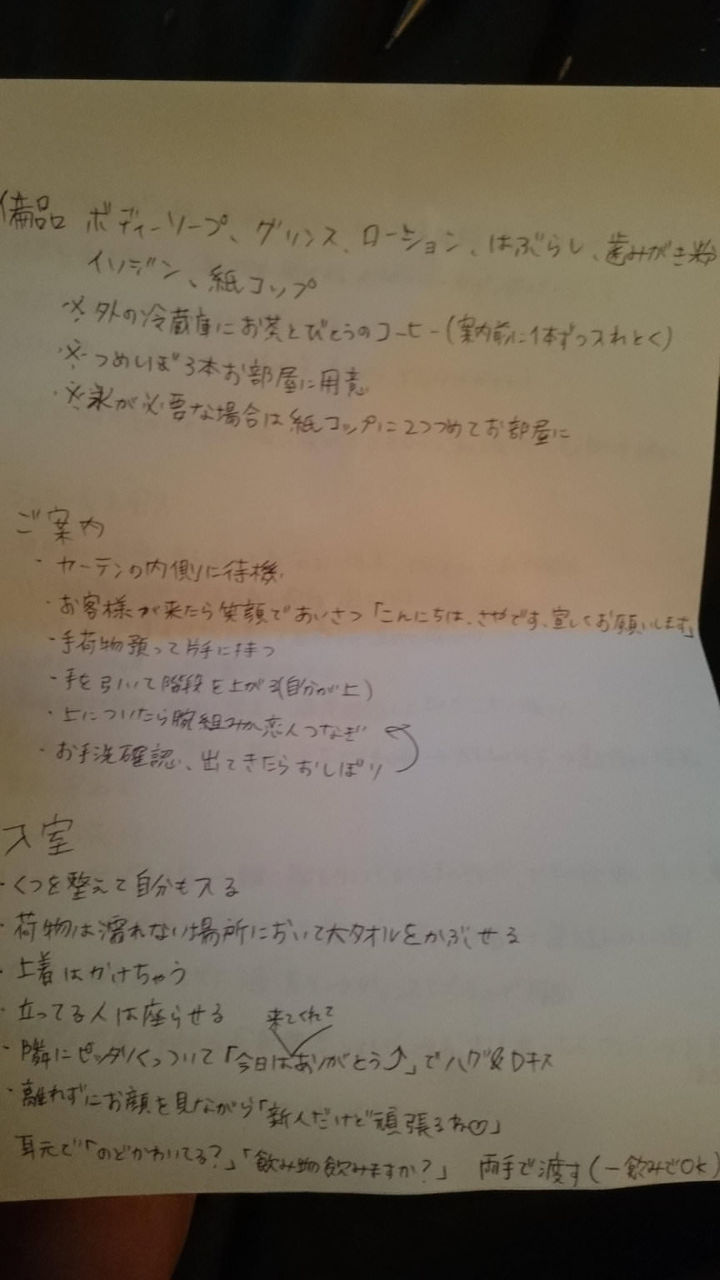 備品 ボディーソープ、グリンス、ローション、はぶらし、歯みがき粉
イソジン、紙コップ
※外の冷蔵庫にお茶とびとうのコーヒー(案内前に1本ずつ入れとく)
※つめしぼ3本お部屋に用意
※氷が必要な場合は紙コップに2つつめてお部屋に
ご案内
・カーテンの内側に待機
・お客様が来たら笑顔であいさつ「こんにちは、さやです、宜しくお願いします」
・手荷物預って片手に持つ
・手を引いて階段を上がる(自分が上)
・上についたら腕組みか恋人つなぎ
・お手洗確認、出てきたらおしぼり
入室
・くつを整えて自分も入る
・荷物は濡れない場所において大タオルをかぶせる
・上着はかけちゃう
・立ってる人は座らせる
来てくれて
・隣にピッタリくっついて「今日はありがとう⤴」でハグ&Dキス
・離れずにお顔を見ながら「新人だけど頑張るね♡」
耳元で「のどかわいてる?」「飲み物飲みますか?」 両手で渡す(一飲みでOK)